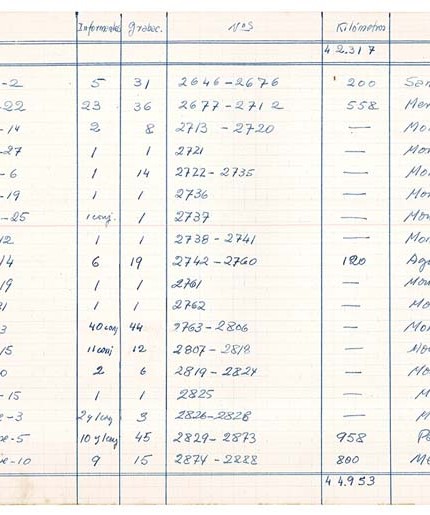 Informantes Grabac. Nos Kilómetros
42.317
-2 5 31 2646-2676 200
-22 23 36 2677-2712 558
-14 2 8 2713-2720 —
-27 1 1 2721 —
-6 1 14 2722-2735 —
-19 1 1 2736 —
-25 1 conj. 1 2737 —
12 1 1 2738-2741 —
14 6 19 2742-2760 120
19 1 1 2761 —
1 1 2762 —
3 40 conj 44 2763-2806 —
15 11 conj 12 2807-2818 —
0 2 6 2819-2824 —
-15 1 1 2825 —
-3 2 y 1 conj 3 2826-2828 —
-5 10 y 1 conj 45 2829-2873 958
-10 9 15 2874-2288 800
44.953